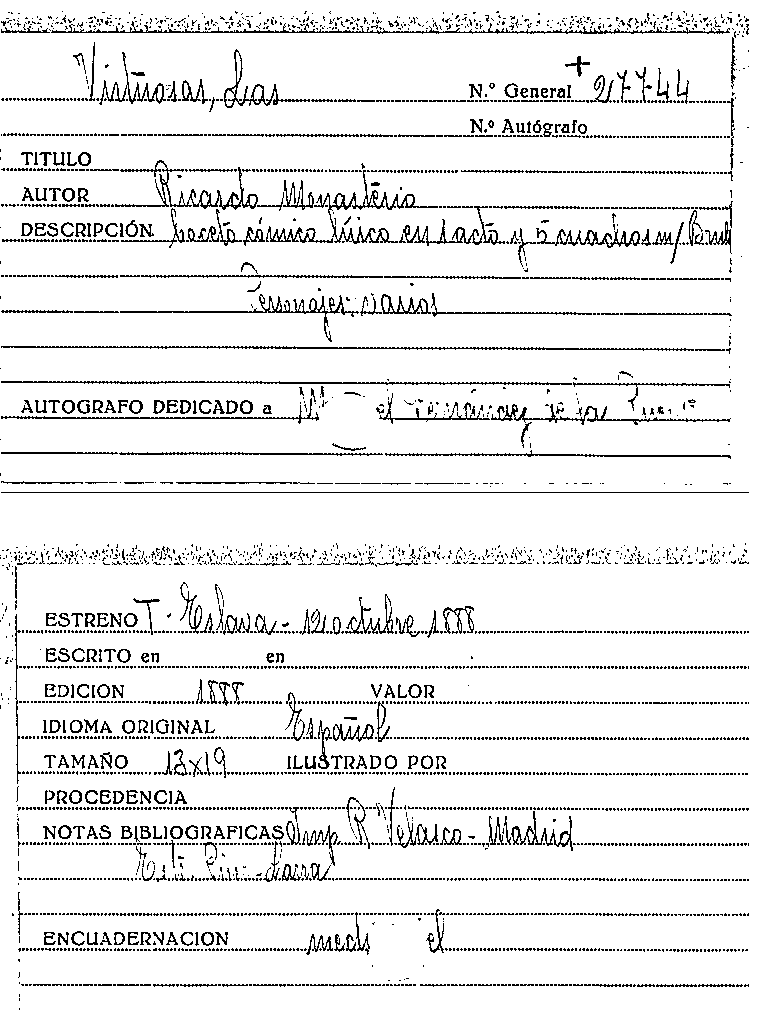 Virtuosas, Las
N.º General + 27744
N.º Autógrafo
TITULO
AUTOR Ricardo Monasterio
DESCRIPCIÓN boceto cómico lírico en 1 acto y 5 cuadros m/ Brull
Personajes: varios
AUTOGRAFO DEDICADO a el Fernández de la Puente
ESTRENO T. Eslava - 12 octubre 1888
ESCRITO en en
EDICION 1888 VALOR
IDIOMA ORIGINAL Español
TAMAÑO 13x19 ILUSTRADO POR
PROCEDENCIA
NOTAS BIBLIOGRAFICAS Imp R Velasco - Madrid
Lara
ENCUADERNACION